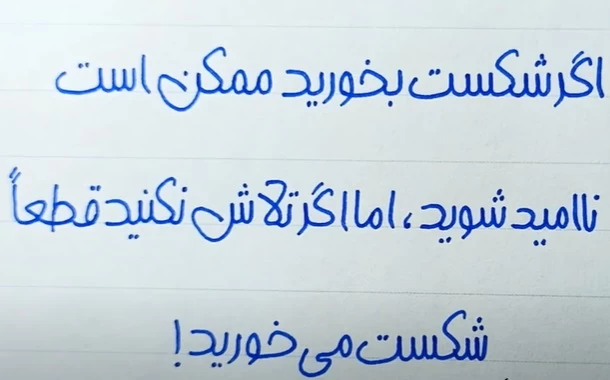 اگر شکست بخورید ممکن است
ناامید شوید، اما اگر تلاش نکنید قطعاً
شکست می خورید!